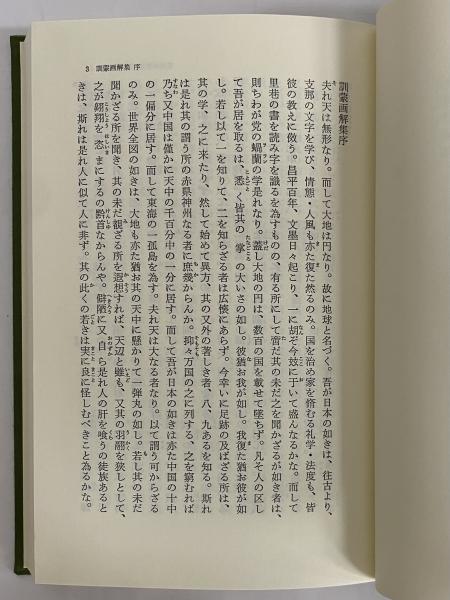 3 訓蒙画解集 序
訓蒙画解集序
夫れ天は無形なり。而して大地は円なり。故に地球と名づく。吾が日本の如きは、往古より、
支那の文字を学び、情態・人風も亦た復た然るのみ。国を治め家を脩むる礼学・法度も、皆
彼の教えに倣う。昌平百年、文墨日々起こり、一に胡ぞ今玆に于いて盛んなるかな。而して
里巷の書を読み字を識るを為すものの、有る所にして嘗だ其の未だ之を聞かざるが如き者は、
則ちわが党の蝸蘭の学是れなり。蓋し大地の円は、数百の国を載せて墜ちず。凡そ人の区し
て吾が居を取るは、悉く皆其の掌の大いさの如し。彼猶お我が如し。我復た猶お彼が如
し。若し以て一を知りて、二を知らざる者は広懐にあらず。今幸いに足跡の及ばざる所は、
其の学、之に来たり、然して始めて異方、其の又外の著しき者、八、九あるを知る。斯れ
は是れ其の謂う所の赤県神州なる者に庶幾からんか。抑々万国の之に列する、之を窮むれば
乃ち又中国は僅かに天中の千百分中の一分に居す。而して吾が日本の如きは赤た中国の十中
の一偏分に居す。而して東海の一孤島を為す。夫れ天は大たる者なり。以て謂う可からざる
のみ。世界全図の如きは、大地も亦た猶お其の天中に懸かりて一弾丸の如し。若し其の未だ
聞かざる所を聞き、其の未だ観ざる所を遐想すれば、天辺と雖も、又其の羽翮を狭しとして、
之が翊翔を恣まにするの黔首なからんや。僻陋に又自ら是れ人の肝を喰うの徒族あると
きは、斯れは是れ人に似て人に非ず。其の此くの若きは実に良に怪しむべきこと為るかな。